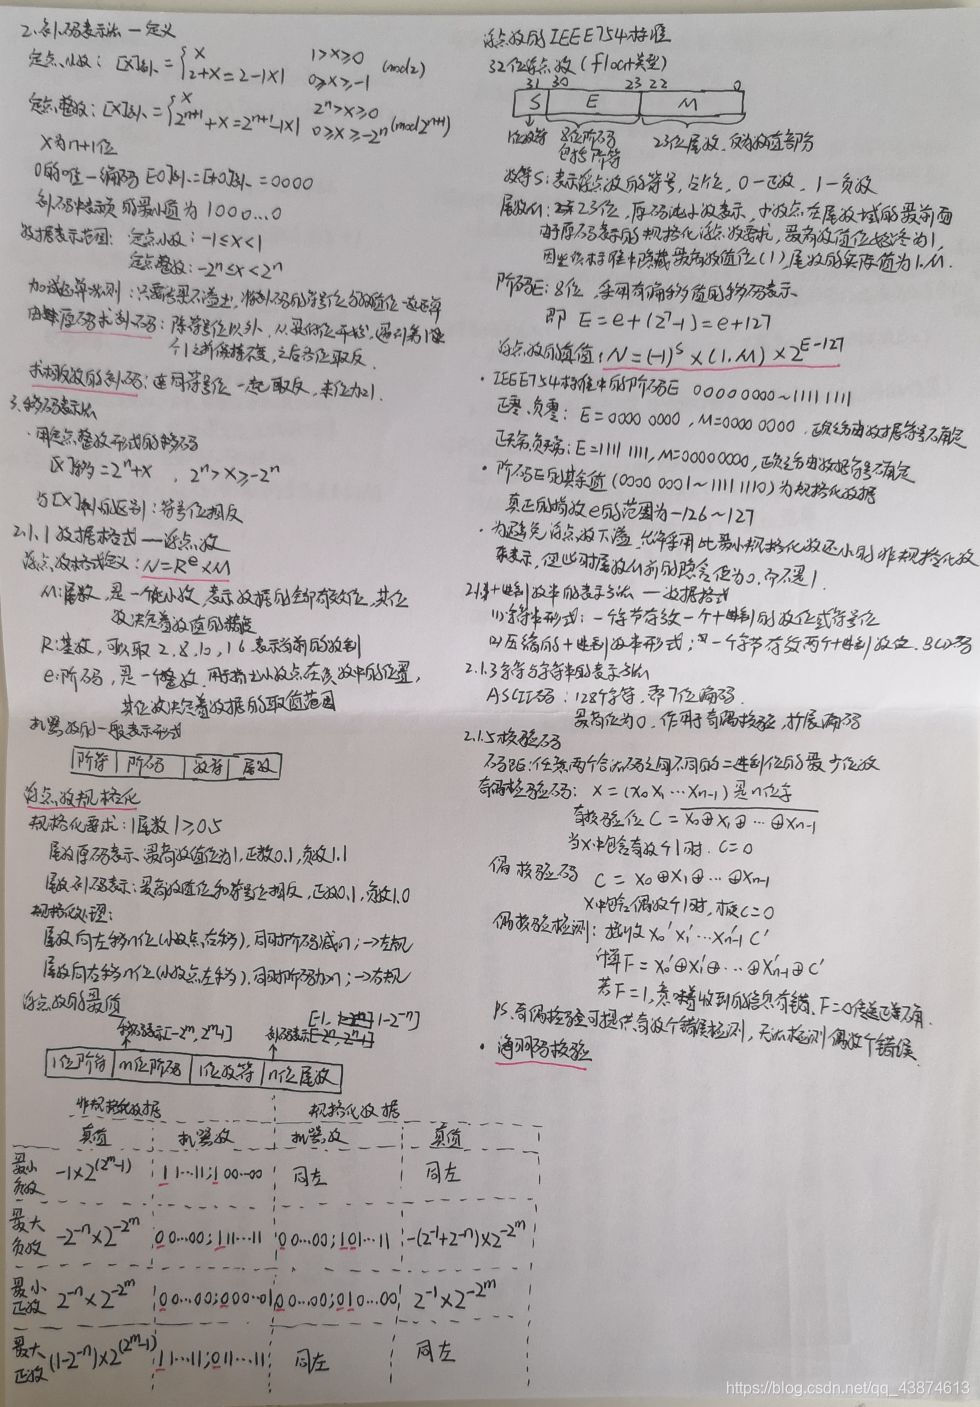 2.补码表示法 — 定义
定点小数: [X]补 = { X 1>X≥0
2+X = 2-|X| 0≥X≥-1 (mod2)
定点整数: [X]补 = { X 2ⁿ>X≥0
2ⁿ⁺¹+X = 2ⁿ⁺¹-|X| 0≥X≥-2ⁿ (mod2ⁿ⁺¹)
X为n+1位
0的唯一编码 [-0]补=[+0]补=0000
补码中表示负的最小值为 1000...0
数据表示范围: 定点小数: -1≤X<1
定点整数: -2ⁿ≤X<2ⁿ
加减运算规则: 只要结果不溢出, 将补码的符号位与数值位一起运算
由原码求补码: 除符号位以外, 从最低位开始, 遇到第1个
1之前保持不变, 之后各位取反
求相反数的补码: 连同符号位一起取反, 末位加1.
3.移码表示法
·用定点整数形式的移码
[X]移=2ⁿ+X , 2ⁿ>X≥-2ⁿ
与[X]补的区别: 符号位相反
2.1.1 数据格式 — 浮点数
浮点数格式定义: N=Rᵉ×M
M:尾数, 是一个纯小数, 表示数据的全部有效位, 其位
数决定着数值的精度
R:基数, 可以取 2,8,10,16 表示当前的数制
e:阶码, 是一个整数, 用于指出小数点在该数中的位置,
其位数决定着数据的取值范围
机器数的一般表示形式
阶符 | 阶码 | 数符 | 尾数
浮点数规格化
规格化要求: |尾数|≥0.5
尾数原码表示、最高数值位为1, 正数0.1, 负数1.1
尾数补码表示: 最高数值位和符号位相反, 正数0.1, 负数1.0
规格化处理:
尾数向左移n位(小数点右移), 同时阶码减n; →左规
尾数向右移n位(小数点左移), 同时阶码加n; →右规
浮点数的最值
移码表示[-2ᵐ, 2ᵐ-1]
[-1, 1-2⁻ⁿ]
补码表示
1位阶符 | m位阶码 | 1位数符 | n位尾数
非规格化数据 规格化数据
真值 机器数 机器数 真值
最小负数 -1×2^(2ᵐ-1) 11...11;100...00 同左 同左
最大负数 -2⁻ⁿ×2^-2ᵐ 00...00;111...11 00...00;101...11 -(2⁻¹+2⁻ⁿ)×2^-2ᵐ
最小正数 2⁻ⁿ×2^-2ᵐ 00...00;000...01 00...00;010...00 2⁻¹×2^-2ᵐ
最大正数 (1-2⁻ⁿ)×2^(2ᵐ-1) 11...11;011...11 同左 同左
浮点数的IEEE754标准
32位浮点数(float类型)
31 30 23 22 0
S | E | M
1位数符 8位阶码 包括阶符 23位尾数, 仅为数值部分
数符S: 表示浮点数的符号, 占1位, 0—正数, 1—负数
尾数M: 23位, 原码纯小数表示, 小数点在尾数域的最前面
由于原码表示的规格化浮点数要求, 最高数值位始终为1,
因此该标准中隐藏最高数值位(1), 尾数的实际值为1.M.
阶码E: 8位, 采用有偏移值的移码表示
即 E=e+(2⁷-1)=e+127
浮点数的真值: N=(-1)ˢ×(1.M)×2^E-127
·IEEE754标准中的阶码E 00000000~11111111
正零、负零: E=0000 0000, M=0000 0000. 正负之分由数据符号不确定
正无穷、负无穷: E=1111 1111, M=00000000, 正负之分由数据符号不确定
·阶码E的其余值(0000 0001~1111 1110)为规格化数据
真正的指数e的范围为-126~127
·为避免浮点数下溢, 允许采用比最小规格化数还小的非规格化数
来表示, 但此时尾数M前的隐含值为0, 而不是1
2.1.2十进制数串的表示方法 — 数据格式
(1)字符串形式: 一个字节存放一个十进制的数位或符号位
(2)压缩的十进制数串形式; 一个字节存放两个十进制数位. BCD码
2.1.3字符与字符串的表示方法
ASCII码: 128个字符, 需7位编码
最高位为0, 作用于奇偶校验, 扩展编码
2.1.5校验码
码距: 任意两个合法码之间不同的二进制位的最少位数
奇偶校验码: X=(X₀X₁...Xn-1)是n位字
奇校验位 C=X₀⊕X₁⊕...⊕Xn-1
当X中包含奇数个1时, C=0
偶校验码 C=X₀⊕X₁⊕...⊕Xn-1
X中包含偶数个1时, C=0
偶校验检测: 接收X₀'X₁'...Xn-1'C'
计算F=X₀'⊕X₁'⊕...⊕Xn-1'⊕C'
若F=1, 意味着收到的信息有错、F=0
PS.奇偶校验可提供奇数个错误检测, 无法检测偶数个错误
·海明码校验
https://blog.csdn.net/qq_43874613